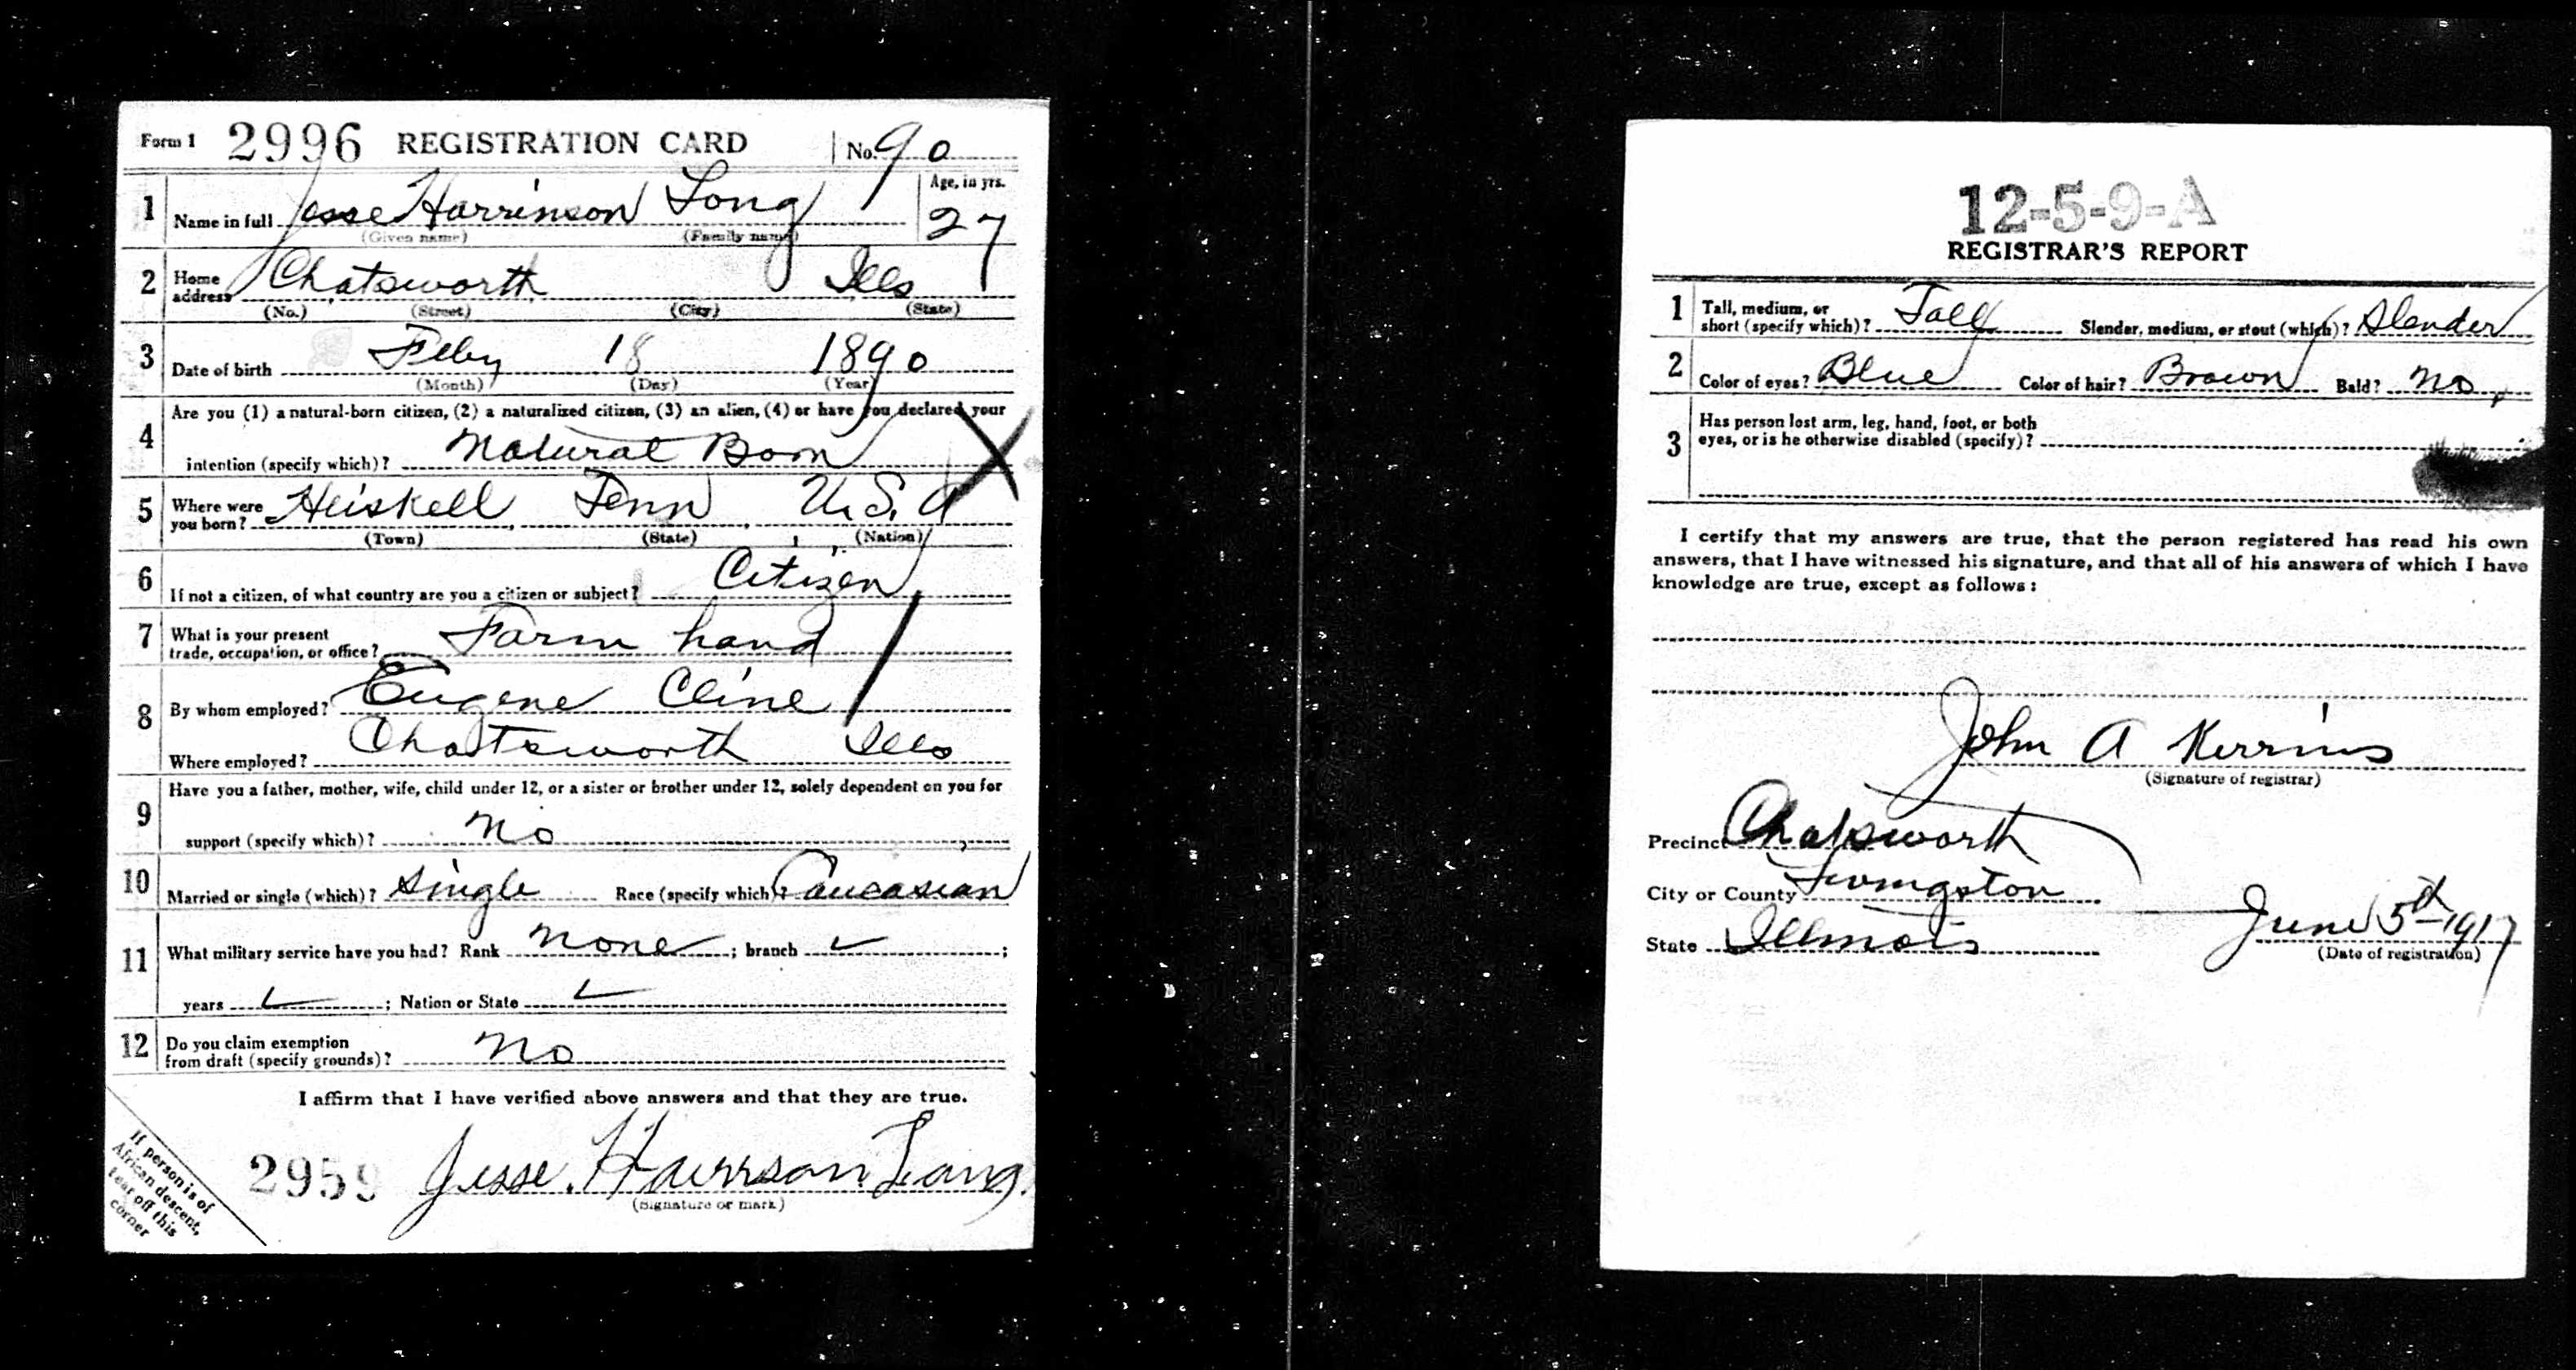 Form 1 2996 REGISTRATION CARD No. 90
1 Name in full Jesse Harrinson Long Age, in yrs. 27
(Given name) (Family name)
2 Home address Chatsworth Ills
(No.) (Street) (City) (State)
3 Date of birth Feby 18 1890
(Month) (Day) (Year)
4 Are you (1) a natural-born citizen, (2) a naturalized citizen, (3) an alien, (4) or have you declared your
intention (specify which)? Natural Born X
5 Where were you born? Heiskell Tenn U.S.A
(Town) (State) (Nation)
6 If not a citizen, of what country are you a citizen or subject? Citizen
7 What is your present trade, occupation, or office? Farm hand
8 By whom employed? Eugene Cline
Where employed? Chatsworth Ills
9 Have you a father, mother, wife, child under 12, or a sister or brother under 12, solely dependent on you for
support (specify which)? No
10 Married or single (which)? Single Race (specify which)? Caucasian
11 What military service have you had? Rank None ; branch ✓ ;
years ✓ ; Nation or State ✓
12 Do you claim exemption from draft (specify grounds)? No
I affirm that I have verified above answers and that they are true.
2959 Jesse Harrson Long
(Signature or mark)
If person is of
African descent,
tear off this
corner
12-5-9-A
REGISTRAR'S REPORT
1 Tall, medium, or short (specify which)? Tall Slender, medium, or stout (which)? Slender
2 Color of eyes? Blue Color of hair? Brown Bald? No
3 Has person lost arm, leg, hand, foot, or both
eyes, or is he otherwise disabled (specify)?
I certify that my answers are true, that the person registered has read his own
answers, that I have witnessed his signature, and that all of his answers of which I have
knowledge are true, except as follows:
John A Kerrins
(Signature of registrar)
Precinct Chatsworth
City or County Livingston
State Illinois June 5th 1917
(Date of registration)